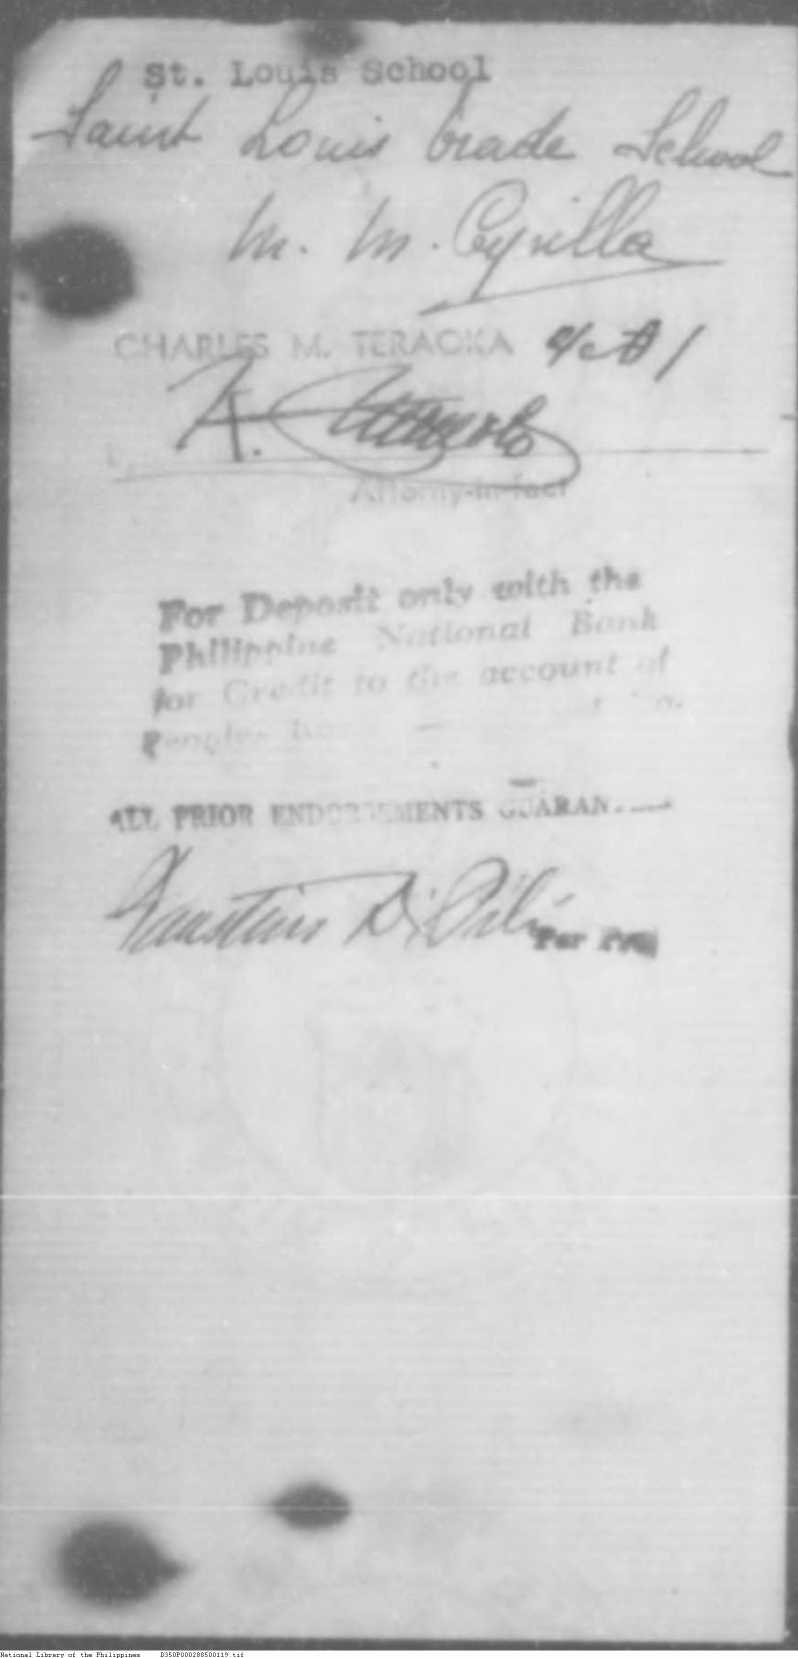 St. Louis School
Saint Louis Grade School
M. M. Cyrilla
CHARLES M. TERAOKA a/c # 1
K.
Attorny-in-fact
For Deposit only with the
Philippine National Bank
for Credit to the account of
Peoples
ALL PRIOR ENDORSEMENTS
Faustino D.
Per
National Library of the Philippines D350P000288500119.tif